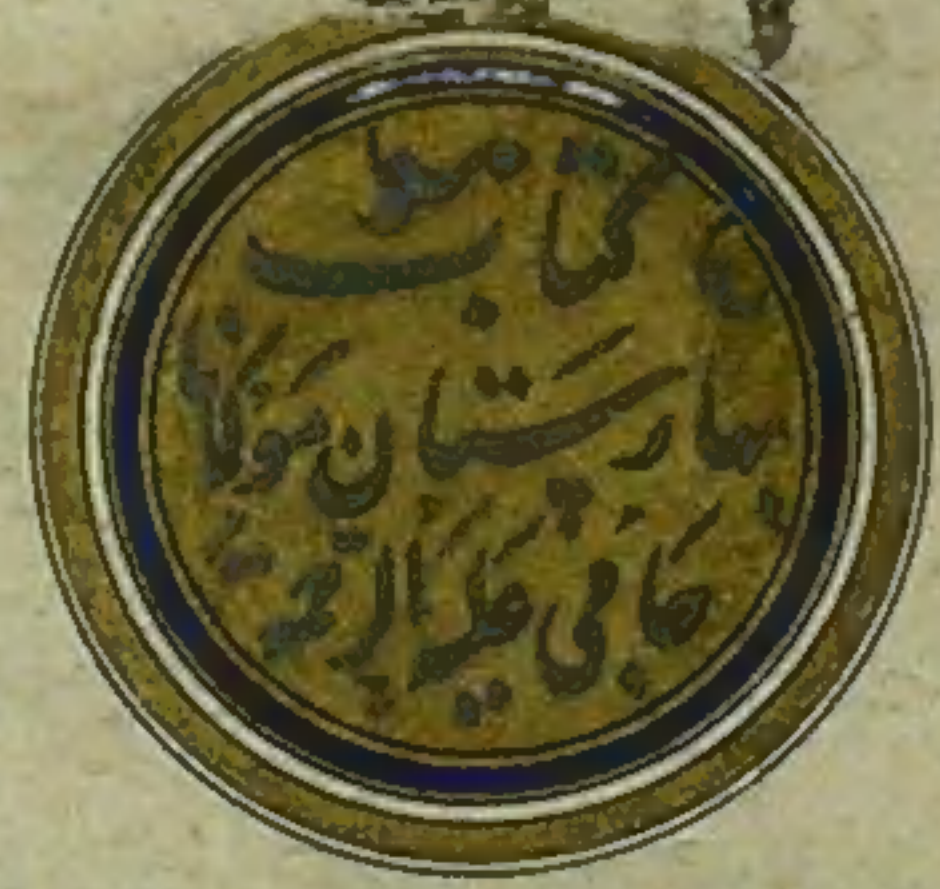 کتاب
بهارستان مولانا
جامی علیه الرحمه